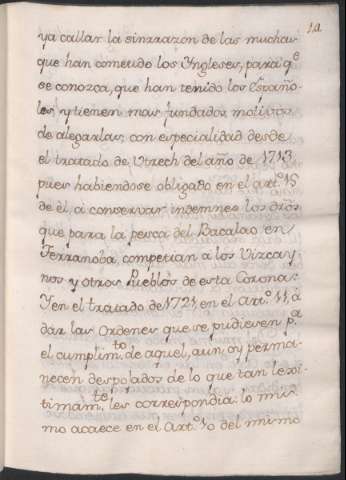 12
ya callar la sinrrazon de las muchas
que han cometido los Yngleses, para q.e
se conozca, que han tenido los Españo-
les, y tienen mas fundados motivos
de alegarlas, con especialidad desde
el tratado de Utrech del año de 1713
pues habiendose obligado en el art.o 15
de èl, á conservar indemnes los dros
que para la pesca del Bacalao en
Terranoba, competian a los Vizcay-
nos y otros Pueblos de esta Corona:
Y en el tratado de 1721, en el Art.o 11, á
dar las Ordenes que se pudiesen p.a
el cumplim.to de aquel, aun oy perma-
necen despojados de lo que tan lexi-
timam.te les correspondia: lo mis-
mo acaece en el Art.o 10 del mismo